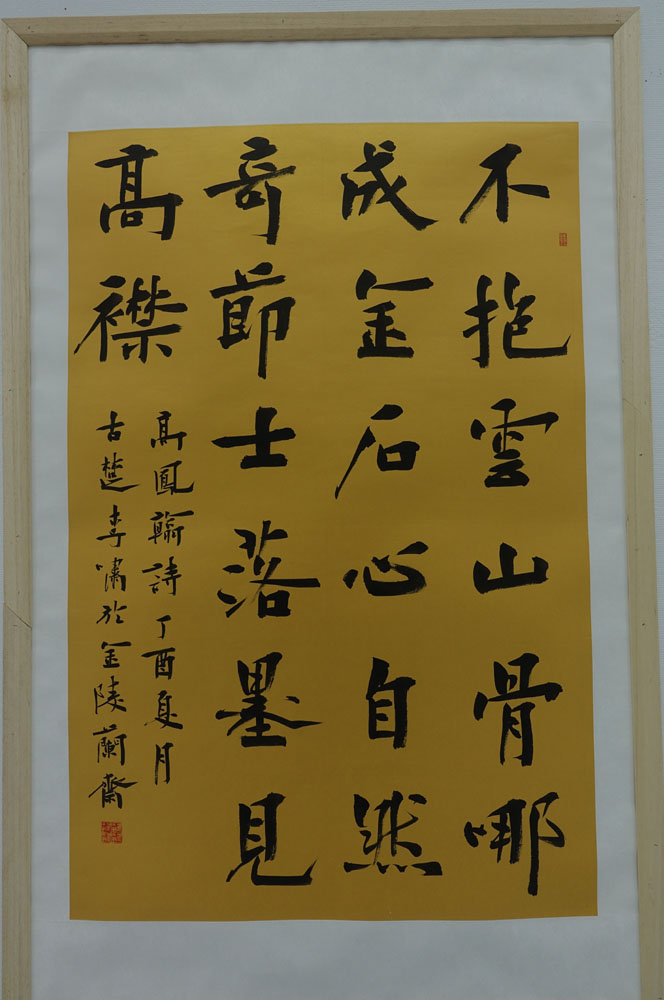 不抱雲山骨哪
成金石心自然
奇節士落墨見
高襟
高鳳翰詩丁酉夏月
古楚李嘯於金陵蘭齋